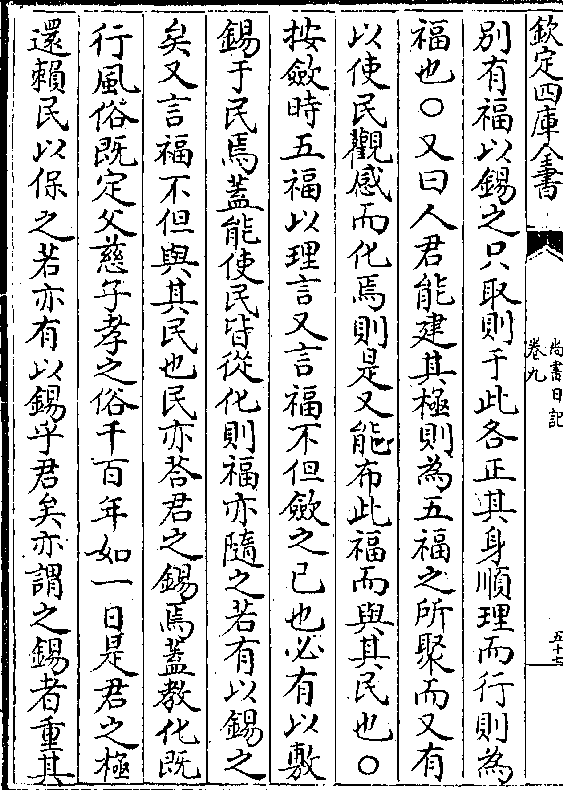 欽定四庫全書
尚書日記
卷九
五十七
別有福以錫之只取則于此各正其身順理而行則為
福也○又曰人君能建其極則為五福之所聚而又有
以使民觀感而化焉則是又能布此福而與其民也○
按斂時五福以理言又言福不但斂之已也必有以敷
錫于民焉蓋能使民皆從化則福亦隨之若有以錫之
矣又言福不但與其民也民亦荅君之錫焉蓋教化既
行風俗既定父慈子孝之俗千百年如一日是君之極
還賴民以保之若亦有以錫乎君矣亦謂之錫者重其